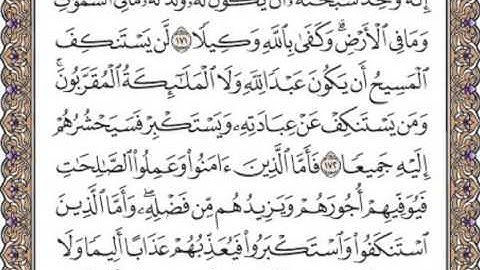 إِلَٰهٌ وَٰحِدٌ سُبْحَٰنَهُۥٓ أَن يَكُونَ لَهُۥ وَلَدٌ لَّهُۥ مَا فِى ٱلسَّمَٰوَٰتِ
وَمَا فِى ٱلْأَرْضِ ۗ وَكَفَىٰ بِٱللَّهِ وَكِيلًا ١٧١ لَّن يَسْتَنكِفَ
ٱلْمَسِيحُ أَن يَكُونَ عَبْدًا لِّلَّهِ وَلَا ٱلْمَلَٰٓئِكَةُ ٱلْمُقَرَّبُونَ ۚ
وَمَن يَسْتَنكِفْ عَنْ عِبَادَتِهِۦ وَيَسْتَكْبِرْ فَسَيَحْشُرُهُمْ
إِلَيْهِ جَمِيعًا ١٧٢ فَأَمَّا ٱلَّذِينَ ءَامَنُوا۟ وَعَمِلُوا۟ ٱلصَّٰلِحَٰتِ
فَيُوَفِّيهِمْ أُجُورَهُمْ وَيَزِيدُهُم مِّن فَضْلِهِۦ ۖ وَأَمَّا ٱلَّذِينَ
ٱسْتَنكَفُوا۟ وَٱسْتَكْبَرُوا۟ فَيُعَذِّبُهُمْ عَذَابًا أَلِيمًا وَلَا